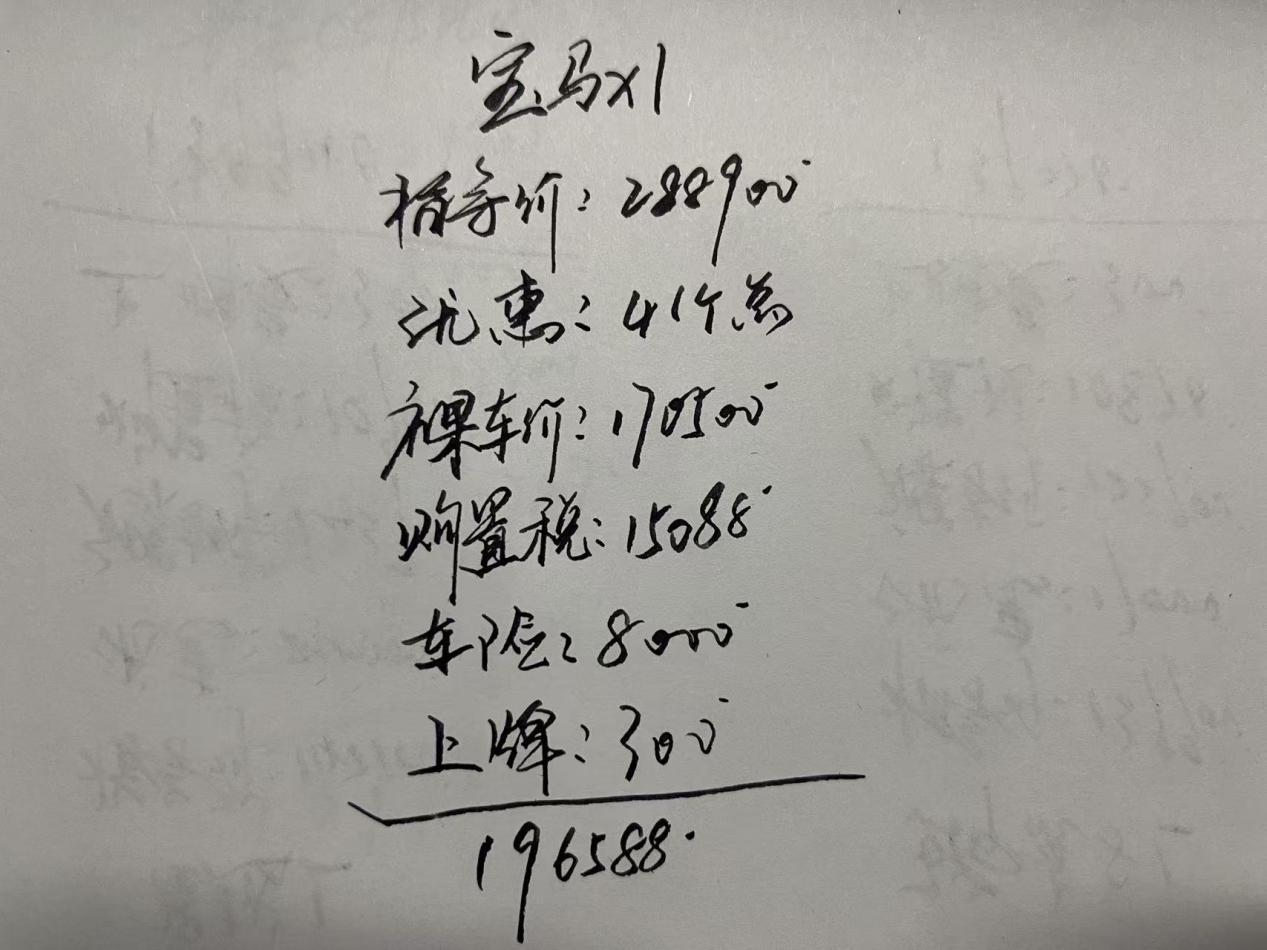 宝马x1
指导价:288900
优惠:41个点
裸车价:170500
购置税:15088
车险:8000
上牌:300
196588.